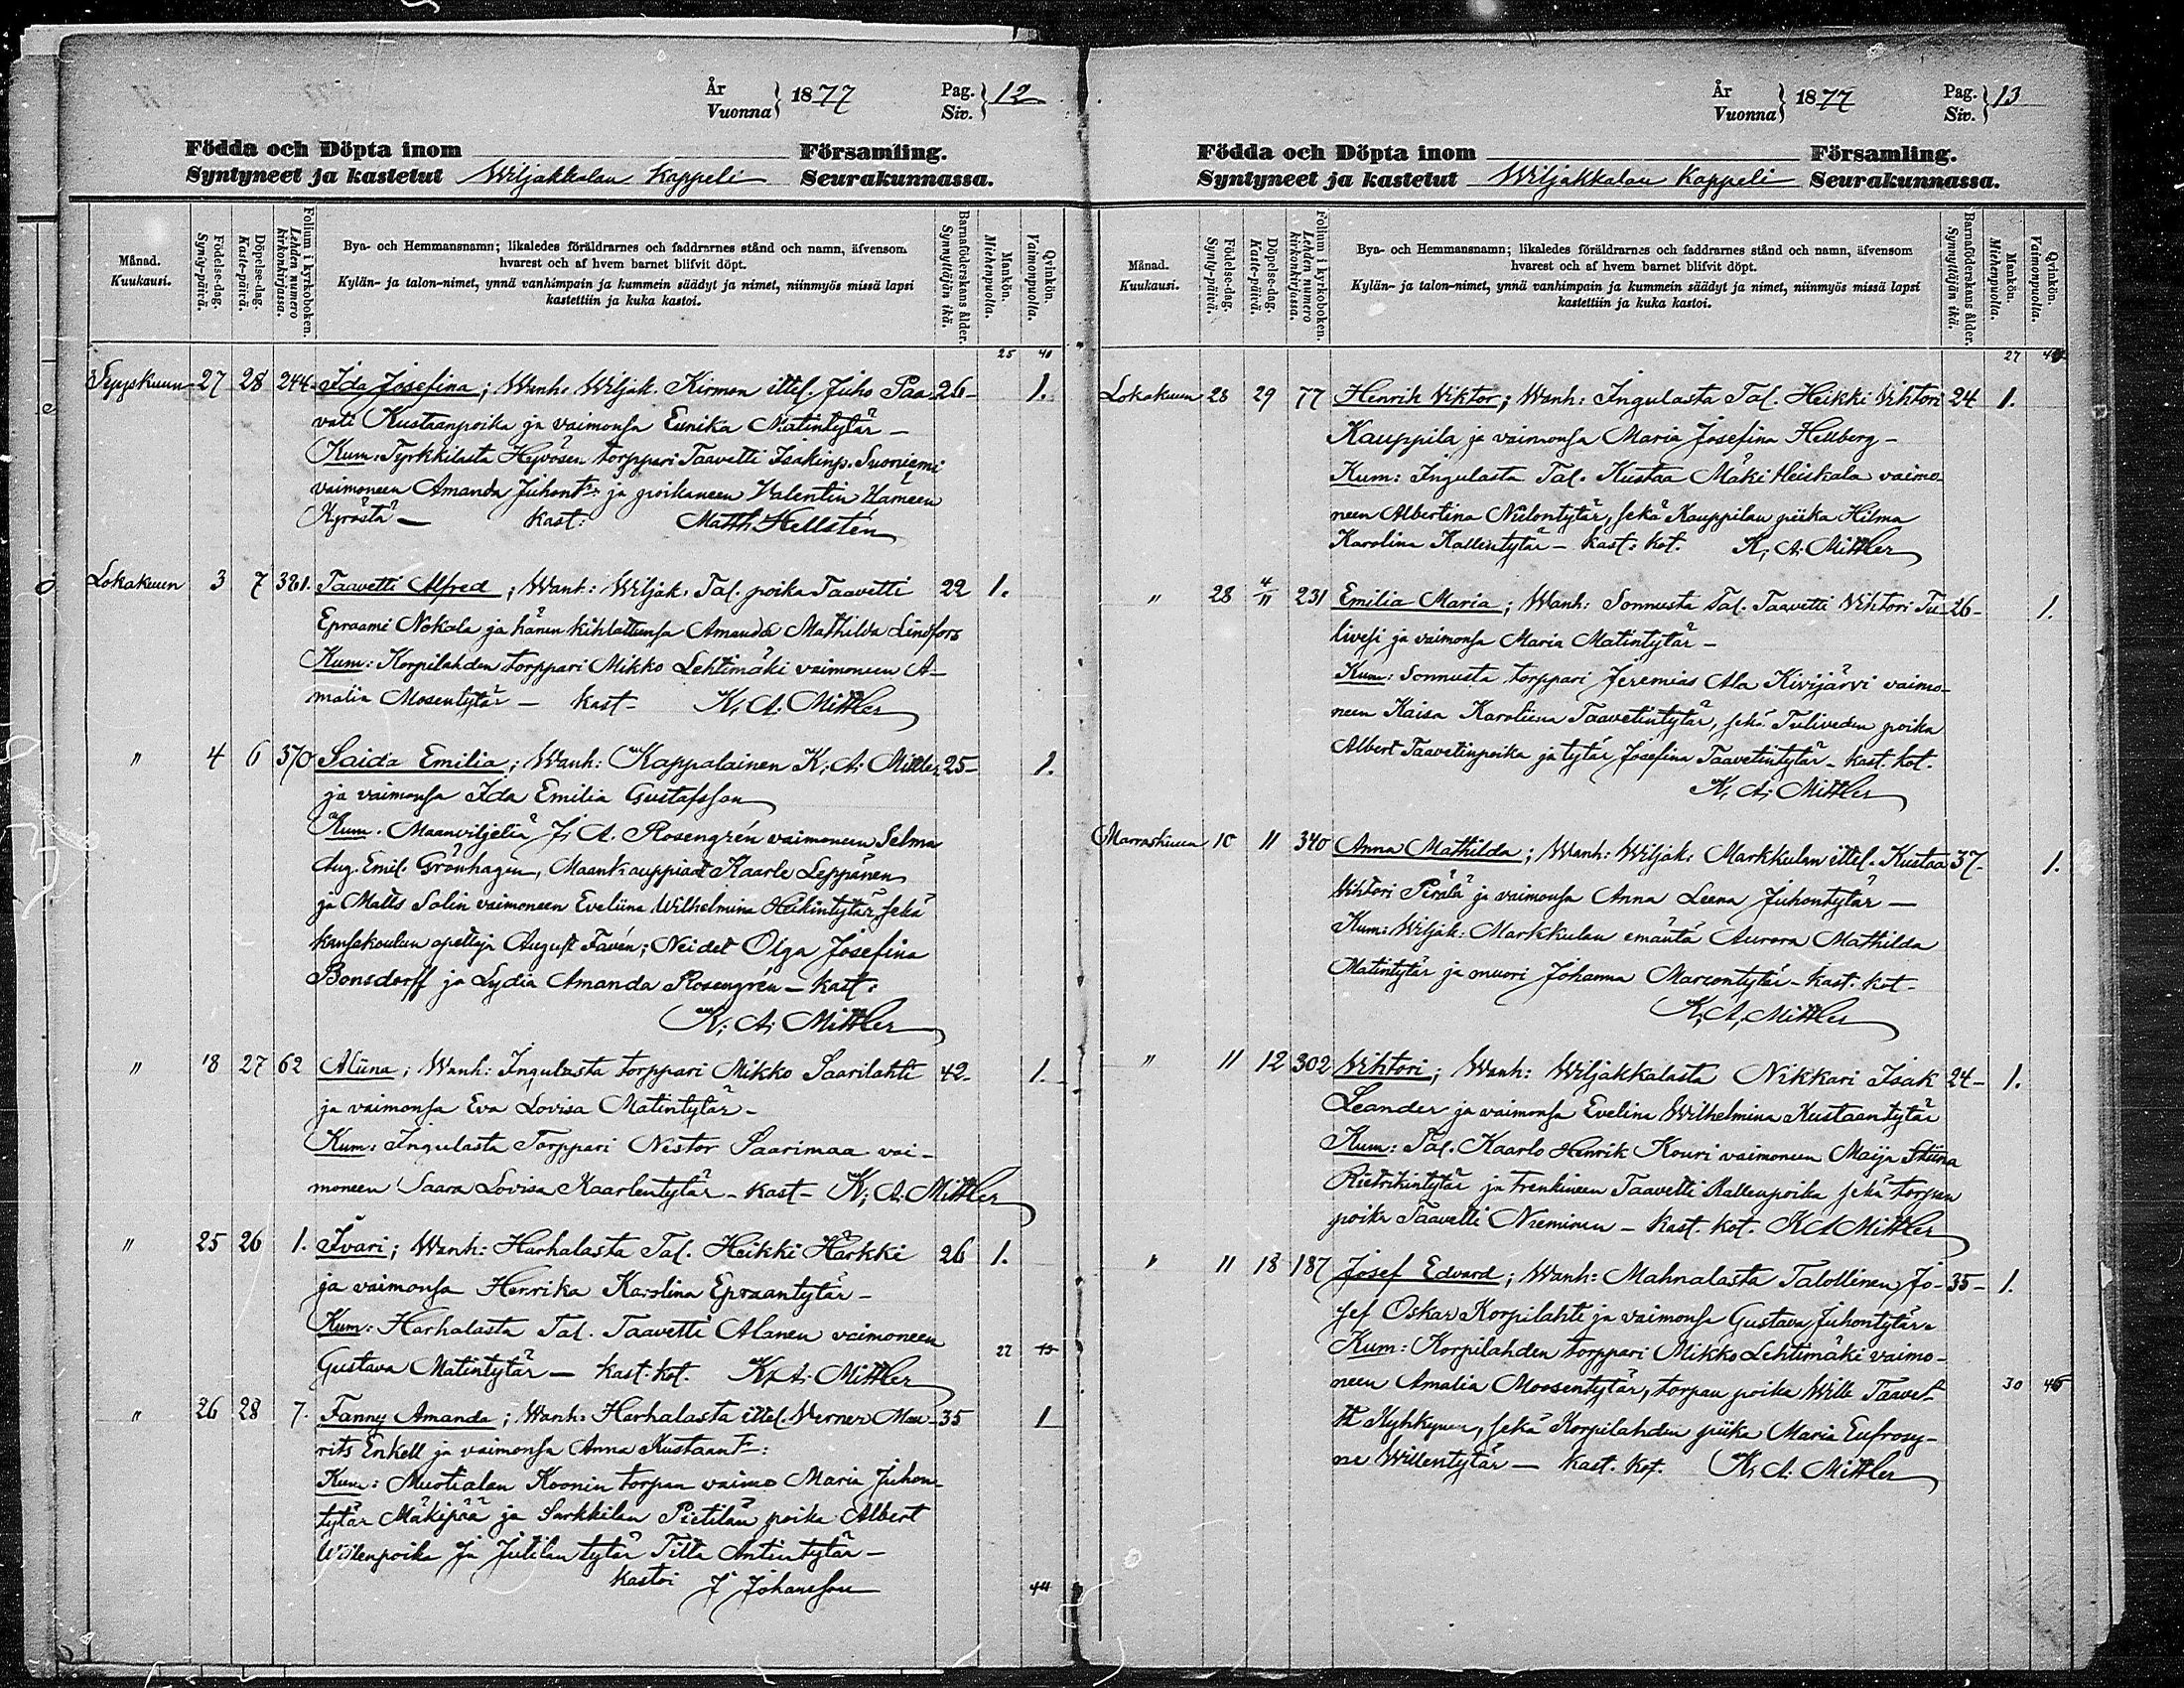 År
Vuonna } 1877
Pag.
Siv. } 12
Födda och Döpta inom Församling.
Syntyneet ja kastetut Wiljakkalan Kappeli Seurakunnassa.
Månad.
Kuukausi.
Födelse-dag.
Synty-päivä.
Döpelse-dag.
Kaste-päivä.
Folium i kyrkoboken.
Lehden numero
kirkonkirjassa.
Bya- och Hemmansnamn; likaledes föräldrarnes och faddrarnes stånd och namn, äfvensom
hvarest och af hvem barnet blifvit döpt.
Kylän- ja talon-nimet, ynnä vanhimpain ja kummein säädyt ja nimet, niinmyös missä lapsi
kastettiin ja kuka kastoi.
Barnaföderskans ålder.
Synnyttäjän ikä.
Mankön.
Miehenpuolia.
Qvinkön.
Vaimonpuolia.
25 40
Syyskuun 27 28 244 Ida Josefina; Wanh: Wiljak. Kirmon ittel. Juho Paa- 26- 1.
vali Kustaanpoika ja vaimonsa Eenika Matintytär -
Kum: Tyrkkilasta Hyvösen torppari Taavetti Isakinp. Suoniemi
vaimoneen Amanda Juhont:r ja poikaneen Valentin Hämeen
Kyröstä - Kast: Matth. Hellstén
Lokakuun 3 7 321. Taavetti Alfred; Wanh: Wiljak. Tal. poika Taavetti 22 1.
Epraami Nokala ja hänen kihlattunsa Amanda Mathilda Lindfors
Kum: Korpilahden torppari Mikko Lehtimäki vaimoneen A-
malia Mosentytär - Kast- K. A. Mittler
" 4 6 370 Saida Emilia; Wanh: Kappalainen K. A. Mittler 25- 1.
ja vaimonsa Ida Emilia Gustafsson
Kum. Maanviljeliä J. A. Rosengrén vaimoneen Selma
Aug. Emil. Grönhagen, Maankauppiaat Kaarle Leppänen
ja Matts Solin vaimoneen Eveliina Wilhelmina Heikintytär, sekä
kansakoulun opettaja August Favén; Neidet Olga Josefina
Bonsdorff ja Lydia Amanda Rosengrén - Kast:
K. A. Mittler
" 18 27 62 Aliina; Wanh: Ingulasta torppari Mikko Saarilahti 42- 1.
ja vaimonsa Eva Lovisa Matintytär -
Kum: Ingulasta Torppari Nestor Saarimaa vai-
moneen Saara Lovisa Kaarlentytär - Kast- K. A. Mittler
" 25 26 1. Ivari; Wanh: Harhalasta Tal. Heikki Härkki 26 1.
ja vaimonsa Henrika Karolina Epraantytär -
Kum: Harhalasta Tal. Taavetti Alanen vaimoneen
Gustava Matintytär - Kast. kot. K. A. Mittler
27
" 26 28 7. Fanny Amanda; Wanh: Harhalasta ittel. Verner Mau- 35 1
rits Enkell ja vaimonsa Anna Kustaant:r
Kum: Muotialan Koonin torpan vaimo Maria Juhon-
tytär Mäkipää ja Sarkkilan Pietilän poika Albert
Willenpoika ja Jutilan tytär Tilta Antintytär -
Kastoi J Johansson
44
År
Vuonna } 1877
Pag.
Siv. } 13
Födda och Döpta inom Församling.
Syntyneet ja kastetut Wiljakkalan Kappeli Seurakunnassa.
Månad.
Kuukausi.
Födelse-dag.
Synty-päivä.
Döpelse-dag.
Kaste-päivä.
Folium i kyrkoboken.
Lehden numero
kirkonkirjassa.
Bya- och Hemmansnamn; likaledes föräldrarnes och faddrarnes stånd och namn, äfvensom
hvarest och af hvem barnet blifvit döpt.
Kylän- ja talon-nimet, ynnä vanhimpain ja kummein säädyt ja nimet, niinmyös missä lapsi
kastettiin ja kuka kastoi.
Barnaföderskans ålder.
Synnyttäjän ikä.
Mankön.
Miehenpuolia.
Qvinkön.
Vaimonpuolia.
27
Lokakuun 28 29 77 Henrik Viktor; Wanh: Ingulasta Tal. Heikki Vihtori 24 1.
Kauppila ja vaimonsa Maria Josefina Hellberg -
Kum: Ingulasta Tal. Kustaa Mäki Heiskala vaimo-
neen Albertina Niilontytär, sekä Kauppilan piika Hilma
Karolina Kallentytär - Kast: kot. K. A. Mittler
" 28 4/11 231 Emilia Maria; Wanh: Sonnusta Tal. Taavetti Vihtori Tu- 26- 1.
livesi ja vaimonsa Maria Matintytär -
Kum: Sonnusta torppari Jeremias Ala Kivijärvi vaimo-
neen Kaisa Karoliina Taavetintytär, sekä Tuliveden poika
Albert Taavetinpoika ja tytär Josefina Taavetintytär - Kast. kot.
K. A. Mittler
Marraskuun 10 11 340 Anna Mathilda; Wanh: Wiljak: Markkulan ittel. Kustaa 37- 1.
Vihtori Perälä ja vaimonsa Anna Leena Juhontytär -
Kum: Wiljak: Markkulan emäntä Aurora Mathilda
Matintytär ja muori Johanna Marcontytär - Kast. kot-
K. A. Mittler
" 11 12 302 Vihtori; Wanh: Wiljakkalasta Nikkari Isak 24- 1.
Leander ja vaimonsa Evelina Wilhelmina Kustaantytär
Kum: Tal. Kaarlo Henrik Kouri vaimoneen Maija Stiina
Rietrikintytär ja trenkineen Taavetti Kallenpoika sekä torpan
poika Taavetti Nieminen - Kast. kot. K A Mittler
" 11 18 187 Josef Edvard; Wanh: Mahnalasta Talollinen Jo- 35- 1.
sef Oskar Korpilahti ja vaimonsa Gustava Juhontytär.
Kum: Korpilahden torppari Mikko Lehtimäki vaimo-
neen Amalia Moosentytär, torpan poika Wille Taavet-
30 45
ti Kyhkynen, sekä Korpilahden piika Maria Eufrosy-
ne Willentytär - Kast. kot. K. A. Mittler